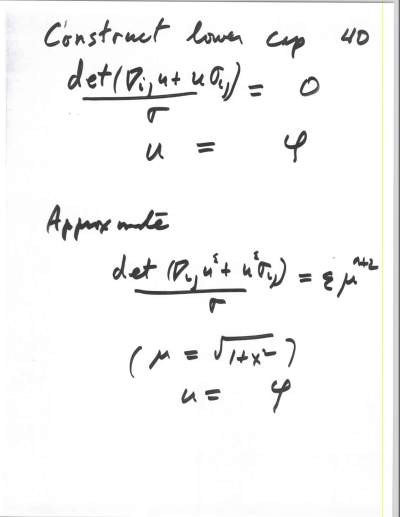 Construct lower cap 40
det(∇ᵢⱼu + uσᵢⱼ) / σ = 0
u = φ
Approximate
det(∇ᵢⱼuᵋ + uᵋσᵢⱼ) / σ = εμⁿ⁺²
(μ = √1+x²)
u = φ